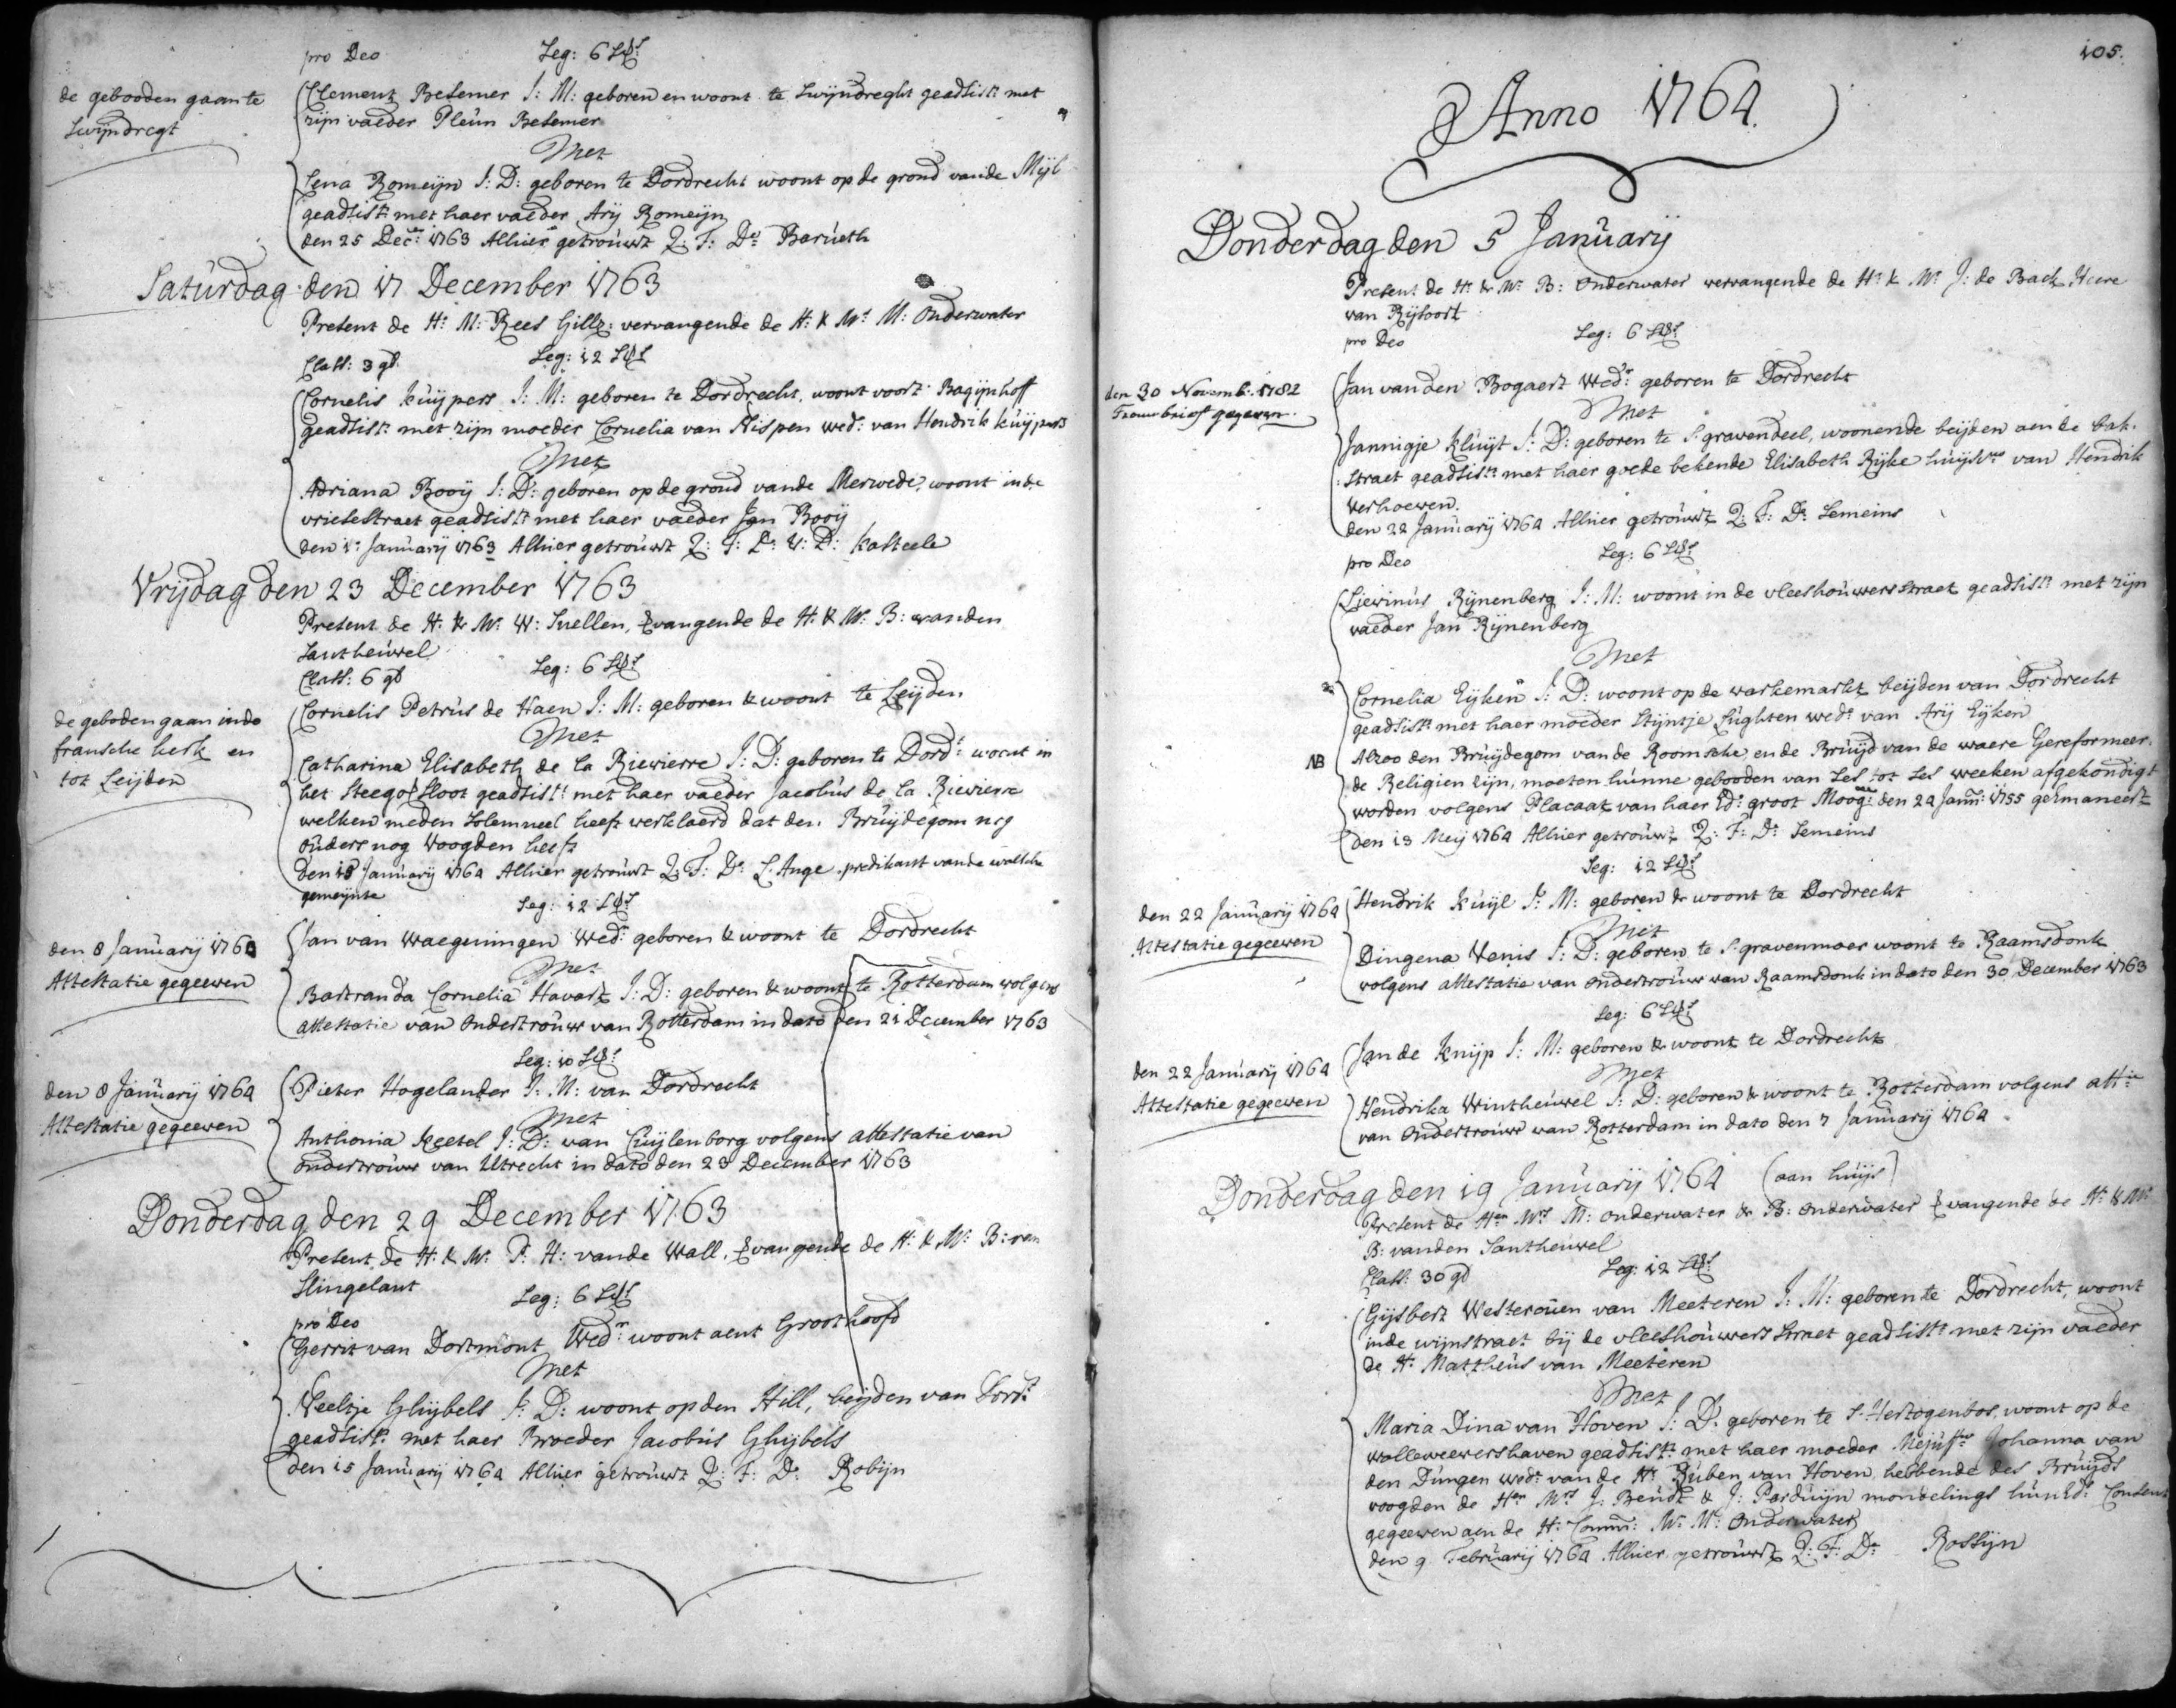 pro Deo Leg: 6
de gebooden gaan te
Swijndregt
Clement Besemer J: M: geboren en woont te Swijndreght geadsist: met
zijn vaeder Pleun Besemer
Met
Lena Romeijn J: D: geboren te Dordrecht woont op de grond vande Mijl
geadsist: met haer vaeder Arij Romeijn
den 25 Dec: 1763 Alhier getrouwt Q: T: Ds: Barueth
Saturdag den 17 December 1763
Present de H: M: Rees Gillz: vervangende de H: & Mr M: Onderwater
Class: 3 gl. Leg: 12
Cornelis Kuijpers J: M: geboren te Dordrecht, woont voort Bagijnhoff
geadsist: met zijn moeder Cornelia van Nispen wed: van Hendrik Kuijpers
Met
Adriana Booij J: D: geboren op de grond vande Merwede, woont inde
vriesestraet geadsist: met haer vaeder Jan Booij
den 1: Januarij 1763 Alhier getrouwt Q: T: Ds: V: D: Kasteele
Vrijdag den 23 December 1763
Present de H: & Mr: W: Snellen, vangende de H: & Mr: B: vanden
Santheuvel
Class: 6 gl Leg: 6
de geboden gaan inde
fransche kerk en
tot Leijden
Cornelis Petrus de Haen J: M: geboren & woont te Leijden
Met
Catharina Elisabeth de la Rievierre J: D: geboren te Dordt: woont in
het Steegoversloot geadsist: met haer vaeder Jacobus de la Rievierre
welken meden solemneel heeft verklaerd dat den Bruijdegom nog
ouders nog voogden heeft
den 18 Januarij 1764 Alhier getrouwt Q: T: Ds: L'Ange predikant vande walsche
gemeijnte
Leg: 12
den 8 Januarij 1764
Attestatie gegeeven
Jan van Waegeningen Wedr: geboren & woont te Dordrecht
Met
Bastranda Cornelia Havart J: D: geboren & woont te Rotterdam volgens
attestatie van ondertrouw van Rotterdam in dato den 21 December 1763
Leg: 10
den 8 Januarij 1764
Attestatie gegeeven
Pieter Hogelander J: M: van Dordrecht
Met
Anthonia Keetel J: D: van Cuijlenborg volgens attestatie van
ondertrouw van Utrecht in dato den 23 December 1763
Donderdag den 29 December 1763
Present de H: & Mr: P: H: vande Wall, vangende de H: & Mr: B: van
Slingelant
Leg: 6
pro Deo
Gerrit van Dortmont Wedr: woont aent Groothoofd
Met
Neeltje Ghijbels J: D: woont op den Hill, beijden van Dordt
geadsist: met haer Broeder Jacobus Ghijbels
den 15 Januarij 1764 Alhier getrouwt Q: T: Ds: Robijn
105.
Anno 1764.
Donderdag den 5 Januarij
Present de H: & Mr: B: Onderwater vervangende de H: & Mr: J: de Back Heere
van Rijsoort
pro Deo Leg: 6
den 30 Novemb: 1782
Trouwbrieff gegeven.
Jan van den Bogaert Wedr: geboren te Dordrecht
Met
Jannigje Kluijt J: D: geboren te S:gravendeel, woonende beijden aen de bak-
straet geadsist: met haer goede bekende Elisabeth Rijke huijsvr: van Hendrik
verhoeven.
den 22 Januarij 1764 Alhier getrouwt Q: T: Ds: Semeins
pro Deo Leg: 6
Lievinus Rijnenberg J: M: woont in de vleeshouwersstraet geadsist: met zijn
vaeder Jan Rijnenberg
Met
Cornelia Eijken J: D: woont op de varkemarkt beijden van Dordrecht
geadsist: met haer moeder Stijntje Lughten wed: van Arij Eijken
NB Alzoo den Bruijdegom vande Roomsche, en de Bruijd van de waere Gereformeer-
de Religien zijn, moeten hunne gebooden van ses tot ses weeken afgekondigt
worden volgens Placaat van haer Ed: groot Moog: den 24 Jann: 1755 geëmaneert
den 13 Meij 1764 Alhier getrouwt Q: T: Ds: Semeins
Leg: 12
den 22 Januarij 1764
Attestatie gegeeven
Hendrik Kuijl J: M: geboren & woont te Dordrecht
Met
Dingena Venis J: D: geboren te S:gravenmoer woont te Raamsdonk
volgens attestatie van ondertrouw van Raamsdonk in dato den 30 December 1763
Leg: 6
den 22 Januarij 1764
Attestatie gegeeven
Jan de Knijp J: M: geboren & woont te Dordrecht
Met
Hendrika Wintheuvel J: D: geboren & woont te Rotterdam volgens att:
van ondertrouw van Rotterdam in dato den 7 Januarij 1764
Donderdag den 19 Januarij 1764 (aan huijs)
Present de Hen: Mrs M: Onderwater & B: Onderwater vangende de H: & Mr
B: vanden Santheuvel
Class: 30 gl Leg: 12
Gijsbert Westerouen van Meeteren J: M: geboren te Dordrecht, woont
inde wijnstraet bij de vleeshouwers straet geadsist: met zijn vaeder
de Hr: Mattheus van Meeteren
Met
Maria Dina van Hoven J: D: geboren te S:Hertogenbos, woont op de
wolleweevershaven geadsist: met haer moeder Mejuffr: Johanna van
den Dungen wed: van de Hr: Ruben van Hoven, hebbende des Bruijds
voogden de Hen Mrs J: Beudt & J: Parduijn mondelings hun Ed: Consent
gegeeven aen de H: Comm: Mr: M: Onderwater
den 9 Februarij 1764 Alhier getrouwt Q: T: Ds: Rossijn